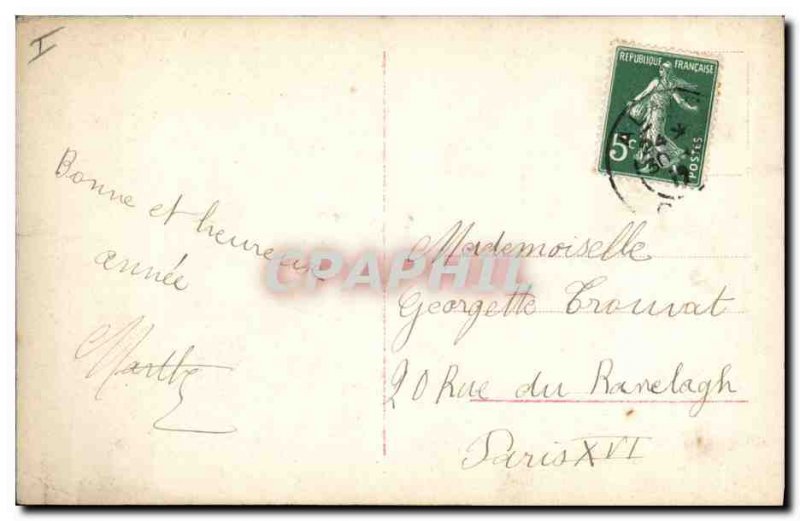 I
Bonne et heureuse
année
Marthe
REPUBLIQUE FRANÇAISE
5c
POSTES
Mademoiselle
Georgette Trouvat
20 Rue du Ranelagh
Paris XVI
CPAPHIL